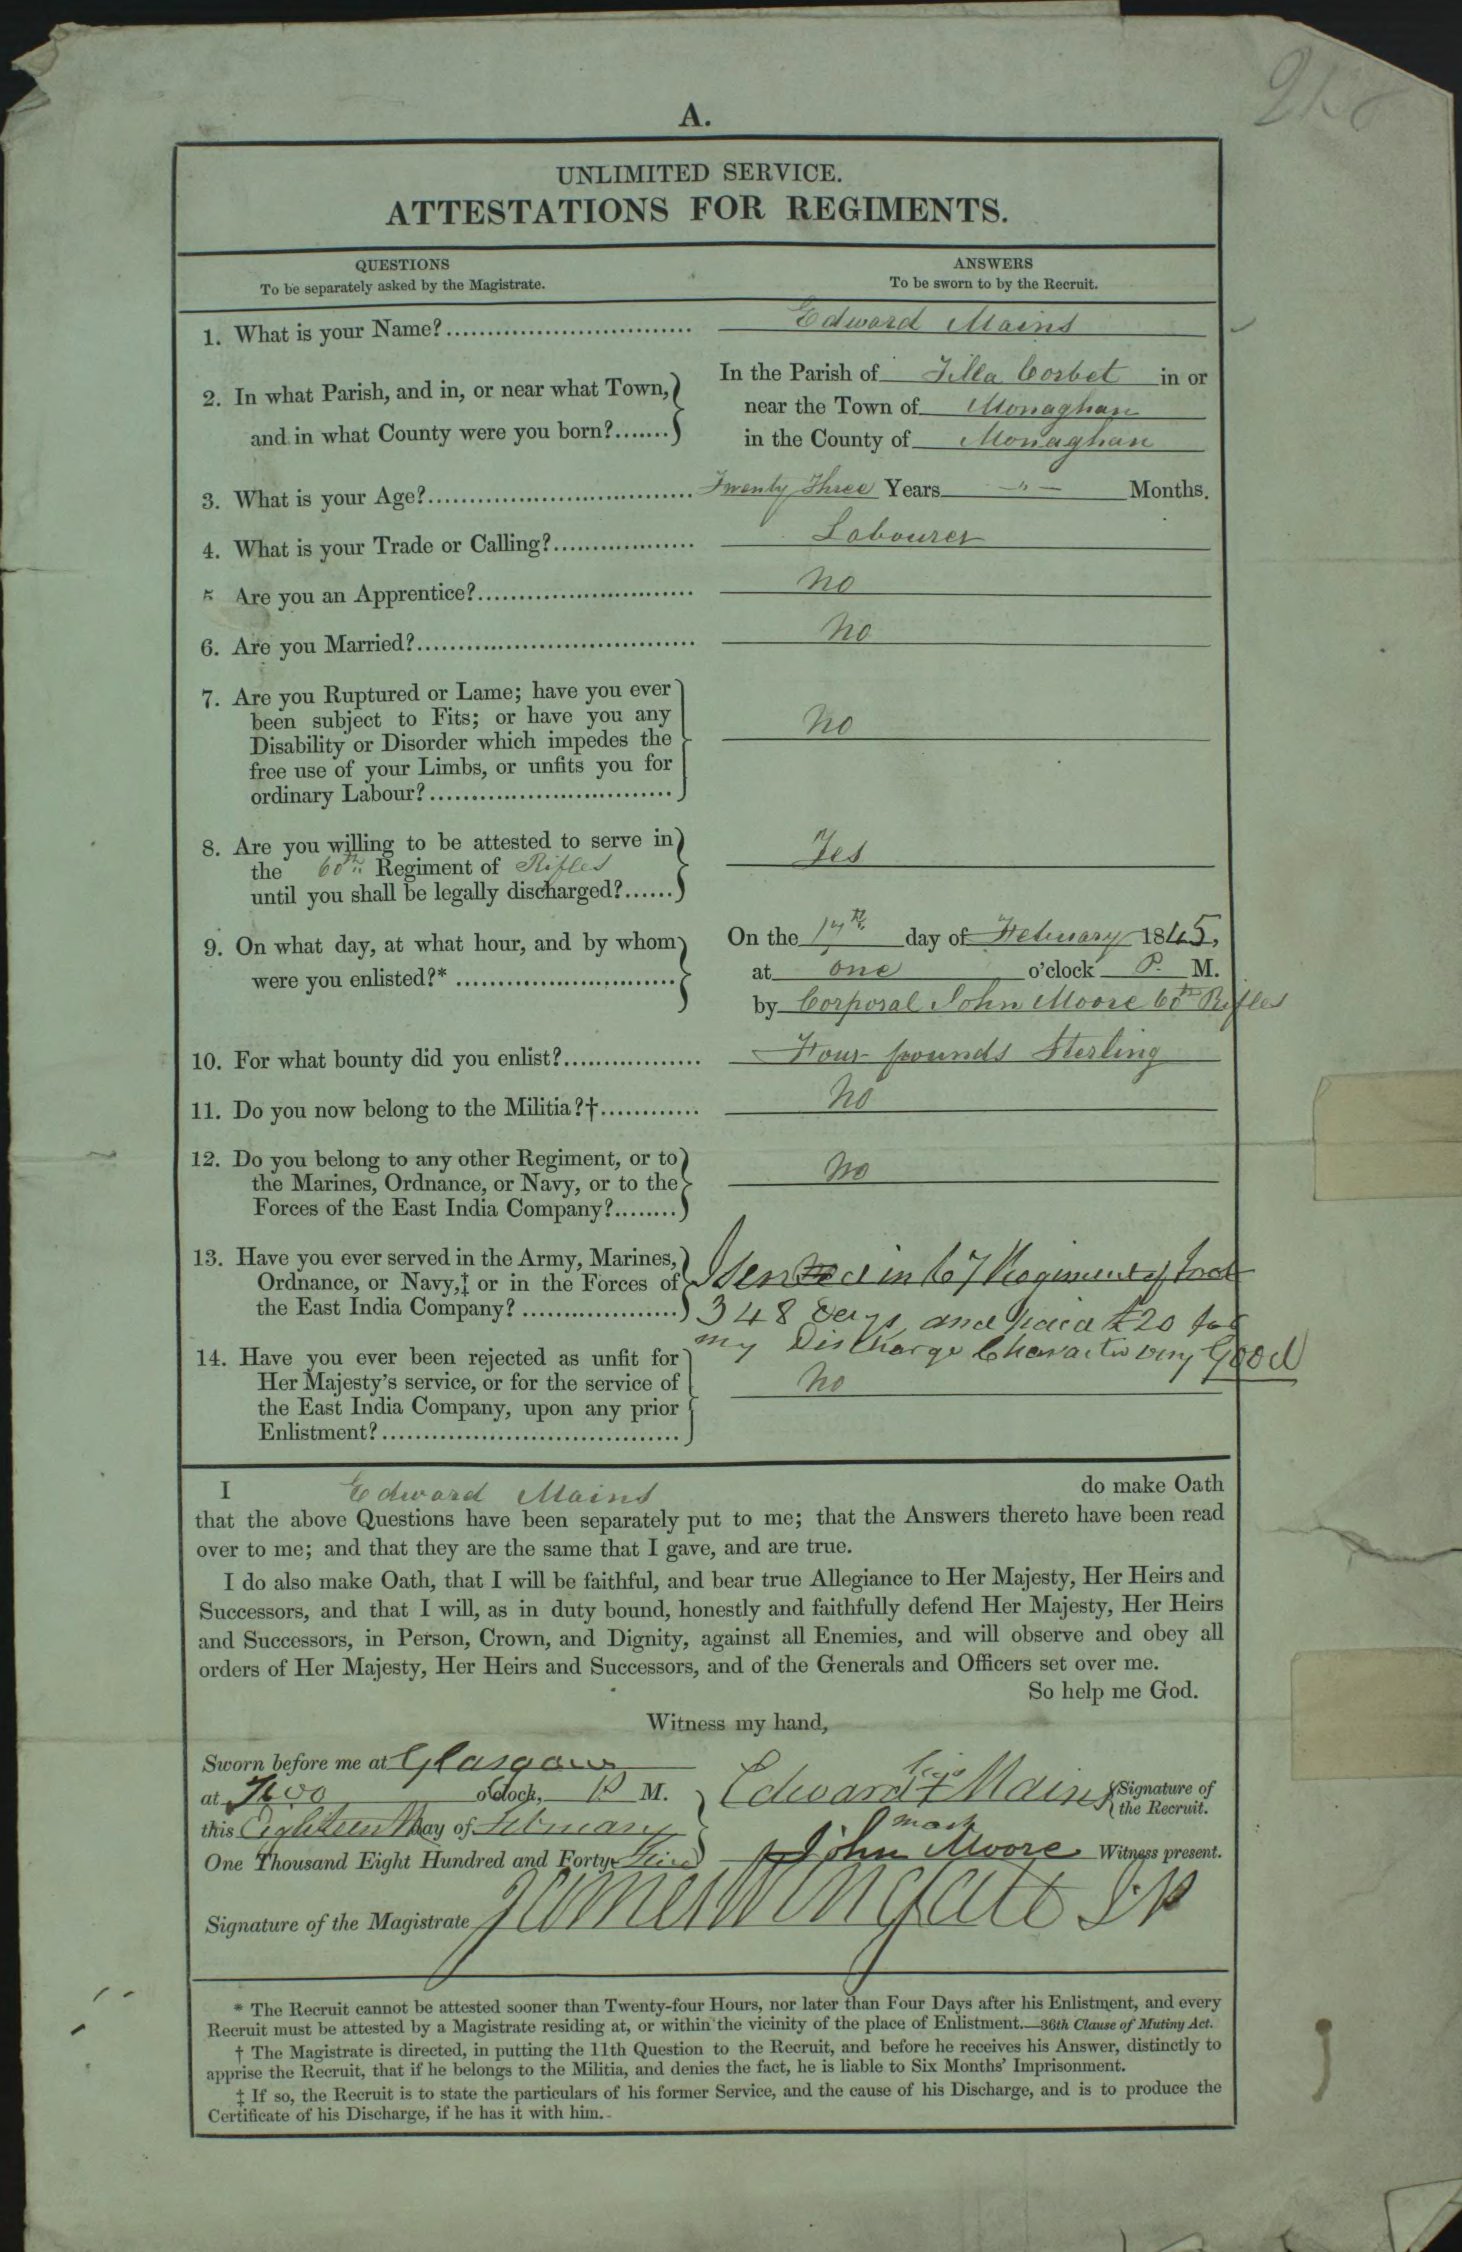 A.
UNLIMITED SERVICE.
ATTESTATIONS FOR REGIMENTS.
QUESTIONS
To be separately asked by the Magistrate.
ANSWERS
To be sworn to by the Recruit.
1. What is your Name?.............................. Edward Mains
2. In what Parish, and in, or near what Town, and in what County were you born?.......
In the Parish of Tilla Corbet in or
near the Town of Monaghan
in the County of Monaghan
3. What is your Age?................................ Twenty Three Years — " — Months.
4. What is your Trade or Calling?.................. Labourer
5 Are you an Apprentice?........................... No
6. Are you Married?.................................. No
7. Are you Ruptured or Lame; have you ever
been subject to Fits; or have you any
Disability or Disorder which impedes the
free use of your Limbs, or unfits you for
ordinary Labour?..............................
No
8. Are you willing to be attested to serve in
the 60th Regiment of Rifles
until you shall be legally discharged?......
Yes
9. On what day, at what hour, and by whom
were you enlisted?* ...........................
On the 17th day of February 1845,
at one o'clock P. M.
by Corporal John Moore 60th Rifles
10. For what bounty did you enlist?................. Four pounds Sterling
11. Do you now belong to the Militia?†............ No
12. Do you belong to any other Regiment, or to
the Marines, Ordnance, or Navy, or to the
Forces of the East India Company?........
No
13. Have you ever served in the Army, Marines,
Ordnance, or Navy,‡ or in the Forces of
the East India Company? ...................
I served in 67 Regiment of foot
348 Days, and paid £20 for
my Discharge Character very Good
14. Have you ever been rejected as unfit for
Her Majesty's service, or for the service of
the East India Company, upon any prior
Enlistment?....................................
No
I Edward Mains do make Oath
that the above Questions have been separately put to me; that the Answers thereto have been read
over to me; and that they are the same that I gave, and are true.
I do also make Oath, that I will be faithful, and bear true Allegiance to Her Majesty, Her Heirs and
Successors, and that I will, as in duty bound, honestly and faithfully defend Her Majesty, Her Heirs
and Successors, in Person, Crown, and Dignity, against all Enemies, and will observe and obey all
orders of Her Majesty, Her Heirs and Successors, and of the Generals and Officers set over me.
So help me God.
Witness my hand,
Sworn before me at Glasgow
at Two o'Clock, P M.
this Eighteenth day of February
One Thousand Eight Hundred and Forty Five
his
Edward + Mains Signature of the Recruit.
mark
John Moore Witness present.
Signature of the Magistrate James Wingate J.P
* The Recruit cannot be attested sooner than Twenty-four Hours, nor later than Four Days after his Enlistment, and every
Recruit must be attested by a Magistrate residing at, or within the vicinity of the place of Enlistment.—36th Clause of Mutiny Act.
† The Magistrate is directed, in putting the 11th Question to the Recruit, and before he receives his Answer, distinctly to
apprise the Recruit, that if he belongs to the Militia, and denies the fact, he is liable to Six Months' Imprisonment.
‡ If so, the Recruit is to state the particulars of his former Service, and the cause of his Discharge, and is to produce the
Certificate of his Discharge, if he has it with him.